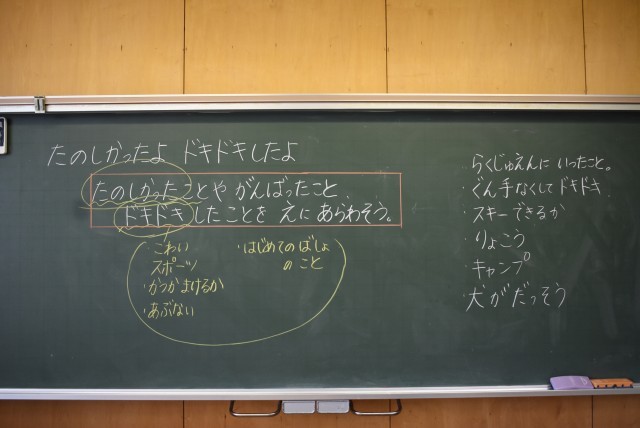 たのしかったよ ドキドキしたよ
たのしかったことや がんばったこと、
ドキドキしたことを えに あらわそう。
こわい
スポーツ
・かつかまけるか
・あぶない
・はじめてのばしょ
のこと
らくじゅえんに いったこと。
・ぐん手なくしてドキドキ
・スキーできるか
・りょこう
・キャンプ
・犬がだっそう